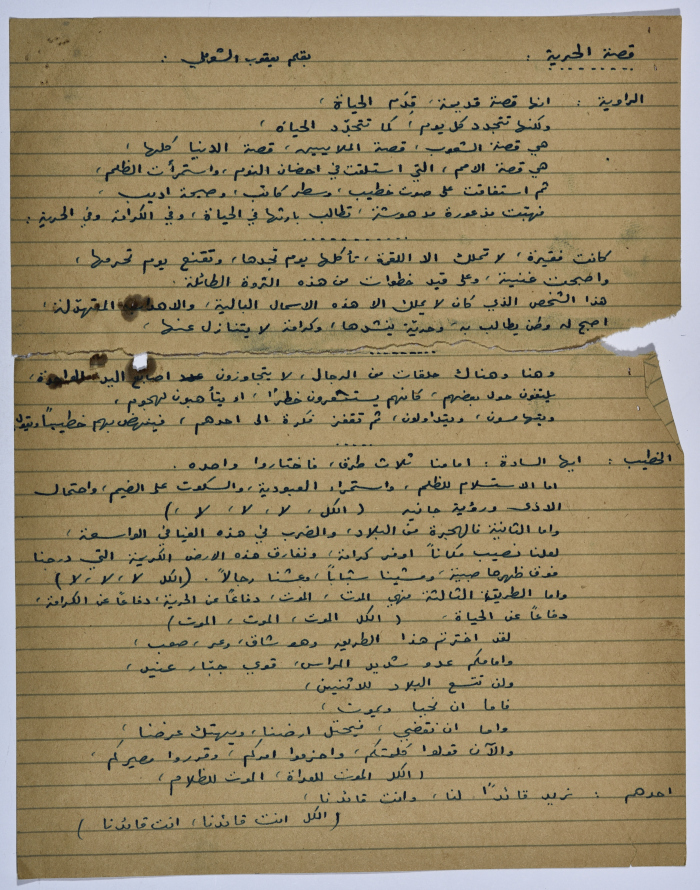 قصة الحرية : بقلم يعقوب الشويلي :
الراوية : انها قصة قديمة، قِدَم الحياة،
ولكنها تتجدد كل يوم، كما تتجدّد الحياة،
هي قصة الشعوب، قصة الملايين، قصة الدنيا كلها،
هي قصة الامم، التي استلقت في احضان النوم، واستمرأت الظلم،
ثم استفاقت على صوت خطيب، وسطر كاتب، وصيحة اديب،
فهبّت مذعورة مدهوشة، تطالب بارثها في الحياة، وفي الكرامة وفي الحرية :
كانت فقيرة، لا تملك الا اللقمة، تأكلها يوم تجدها، وتقنع يوم تحرمها،
واصبحت غنية، وعلى قيد خطوات من هذه الثروة الطائلة.
هذا الشخص الذي كان لا يملك الا هذه الاسمال البالية، والاهداب المتهدّلة،
اصبح له وطن يطالب به، وحرّية ينشدها، وكرامة لا يتنازل عنها،
وهنا وهناك حلقات من الرجال، لا يتجاوزون عدد اصابع اليد الواحدة،
يلتفون حول بعضهم، كانهم يستشعرون خطرًا، او يتأهبون لهجوم،
ويتهامسون، ويتداولون، ثم تقفز فكرة الى احدهم، فينهض بهم خطيباً ويقول
الخطيب : ايها السادة : امامنا ثلاث طرق، فاختاروا واحده.
اما الاستسلام للظلم، واستمراء العبودية، والسكوت على الضيم، واحتمال
الاذى ورؤية جانيه ( الكل، لا، لا، لا، )
واما الثانية فالهجرة من البلاد، والضرب في هذه الفيافي الواسعة،
لعلنا نصيب مكاناً اوفر كرامة، ونفارق هذه الارض الكريمة التي درجنا
فوق ظهرها صبية، ومشينا شباباً، وعشنا رجالاً. (الكل لا، لا، لا)
واما الطريقة الثالثة فهي الموت، الموت، دفاعاً عن الحرية، دفاعاً عن الكرامة،
دفاعاً عن الحياة، ( الكل الموت، الموت، الموت)
لقد اخترتم هذا الطريق وهو شاق، وعر، صعب،
وامامكم عدو شديد المراس، قوي جبّار عنيد،
ولن تتسع البلاد للاثنين،
فاما ان نحيا ويموت،
واما ان نقضي، فيحتل ارضنا، ويهتك عرضنا،
والآن قولوا كلمتكم، واحزموا امركم، وقرروا مصيركم،
(الكل الموت للعداة، الموت للظلام،
احدهم : نريد قائدًا لنا، وانت قائدنا،
(الكل انت قائدنا، انت قائدنا )